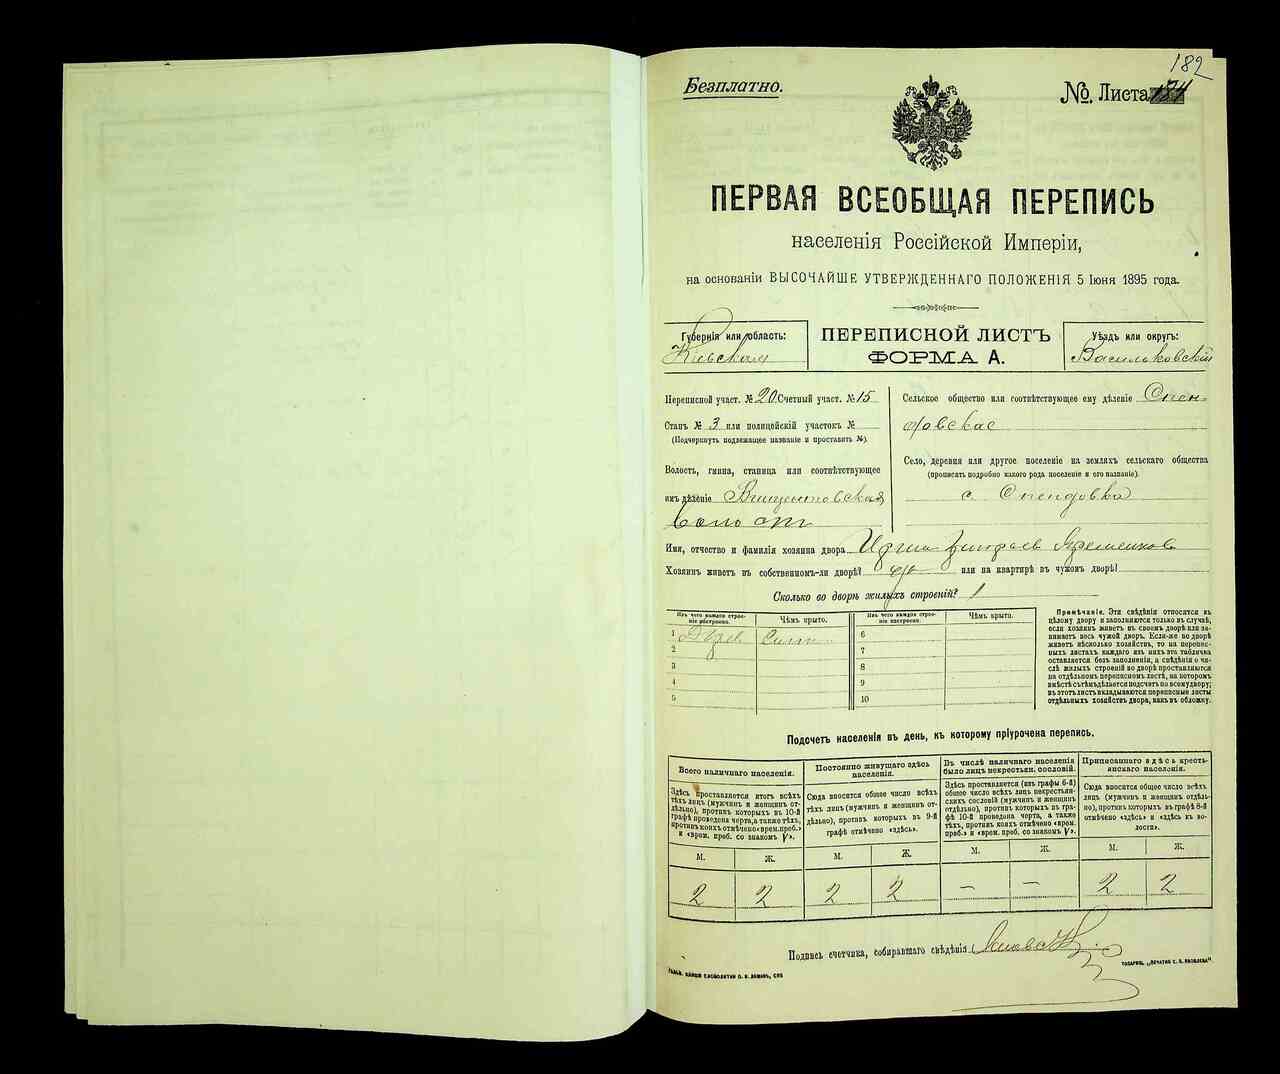 182
Безплатно.
№ Листа 174
ПЕРВАЯ ВСЕОБЩАЯ ПЕРЕПИСЬ
населенія Россійской Имперіи,
на основаніи ВЫСОЧАЙШЕ УТВЕРЖДЕННАГО ПОЛОЖЕНІЯ 5 Іюня 1895 года.
Губернія или область:
Кіевская
ПЕРЕПИСНОЙ ЛИСТЪ
ФОРМА А.
Уѣздъ или округъ:
Васильковскій
Переписной участ. № 20 Счетный участ. № 15
Станъ № 3 или полицейскій участокъ №
(Подчеркнуть подлежащее названіе и проставить №).
Волость, гмина, станица или соотвѣтствующее
имъ дѣленіе
волость
Сельское общество или соотвѣтствующее ему дѣленіе
Село, деревня или другое поселеніе на земляхъ сельскаго общества
(прописать подробно какого рода поселеніе и его названіе).
с.
Имя, отчество и фамилія хозяина двора
Хозяинъ живетъ въ собственномъ-ли дворѣ? или на квартирѣ въ чужомъ дворѣ?
Сколько во дворѣ жилыхъ строеній? 1
Изъ чего каждое строеніе построено. Чѣмъ крыто. Изъ чего каждое строеніе построено. Чѣмъ крыто.
1 6
2 7
3 8
4 9
5 10
Примѣчаніе. Эти свѣдѣнія относятся къ
цѣлому двору и заполняются только въ случаѣ,
если хозяинъ живетъ въ своемъ дворѣ или занимаетъ
весь чужой дворъ. Если-же во дворѣ
живетъ нѣсколько хозяйствъ, то на переписныхъ
листахъ каждаго изъ нихъ эта табличка
оставляется безъ заполненія, а свѣдѣнія о числѣ
жилыхъ строеній во дворѣ проставляются
на отдѣльномъ переписномъ листѣ, на которомъ
вмѣстѣ съ тѣмъ дѣлается подсчетъ по всему двору;
въ этотъ листъ вкладываются переписные листы
отдѣльныхъ хозяйствъ двора, какъ въ обложку.
Подсчетъ населенія въ день, къ которому пріурочена перепись.
Всего наличнаго населенія.
Здѣсь проставляется итогъ всѣхъ
тѣхъ лицъ (мужчинъ и женщинъ отдѣльно),
противъ которыхъ въ 10-й
графѣ проведена черта, а также тѣхъ,
противъ коихъ отмѣчено «врем. преб.»
и «врем. преб. со знакомъ V».
Постоянно живущаго здѣсь
населенія.
Сюда вносится общее число всѣхъ
тѣхъ лицъ (мужчинъ и женщинъ отдѣльно),
противъ которыхъ въ 9-й
графѣ отмѣчено «здѣсь».
Въ числѣ наличнаго населенія
было лицъ некрестьян. сословій.
Здѣсь проставляется (изъ графы 6-й)
общее число всѣхъ лицъ некрестьянскихъ
сословій (мужчинъ и женщинъ
отдѣльно), противъ которыхъ въ графѣ
10-й проведена черта, а также
тѣхъ, противъ коихъ отмѣчено «врем.
преб.» и «врем. преб. со знакомъ V».
Приписаннаго здѣсь крестьянскаго
населенія.
Сюда вносится общее число всѣхъ
лицъ (мужчинъ и женщинъ отдѣльно),
противъ которыхъ въ графѣ 8-й
отмѣчено «здѣсь» и «здѣсь къ волости».
М. Ж. М. Ж. М. Ж. М. Ж.
2 2 2 2 – – 2 2
Подпись счетчика, собиравшаго свѣдѣнія